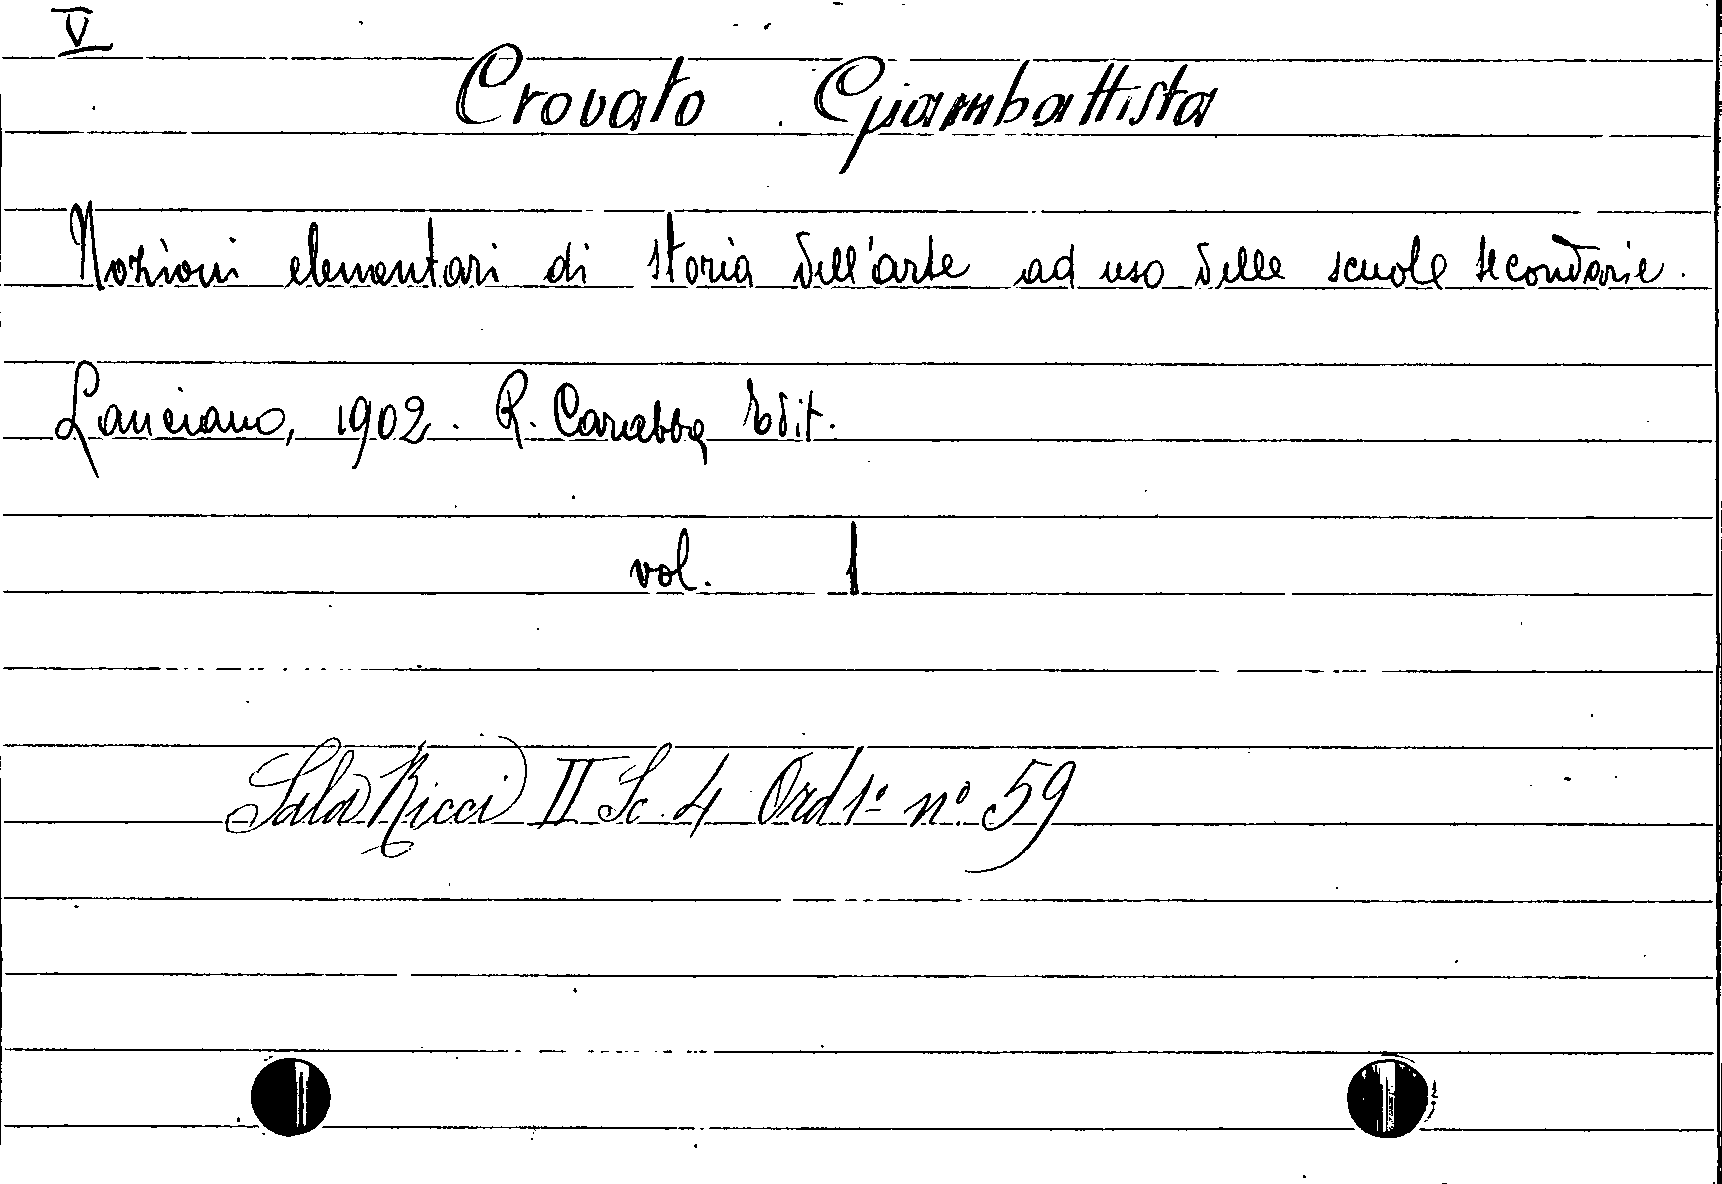 V
Crovato Giambattista
Nozioni elementari di storia dell'arte ad uso delle scuole secondarie.
Lanciano, 1902. R. Carabba Edit.
vol. 1
Sala Ricci II Sc. 4 Ord 1º nº 59